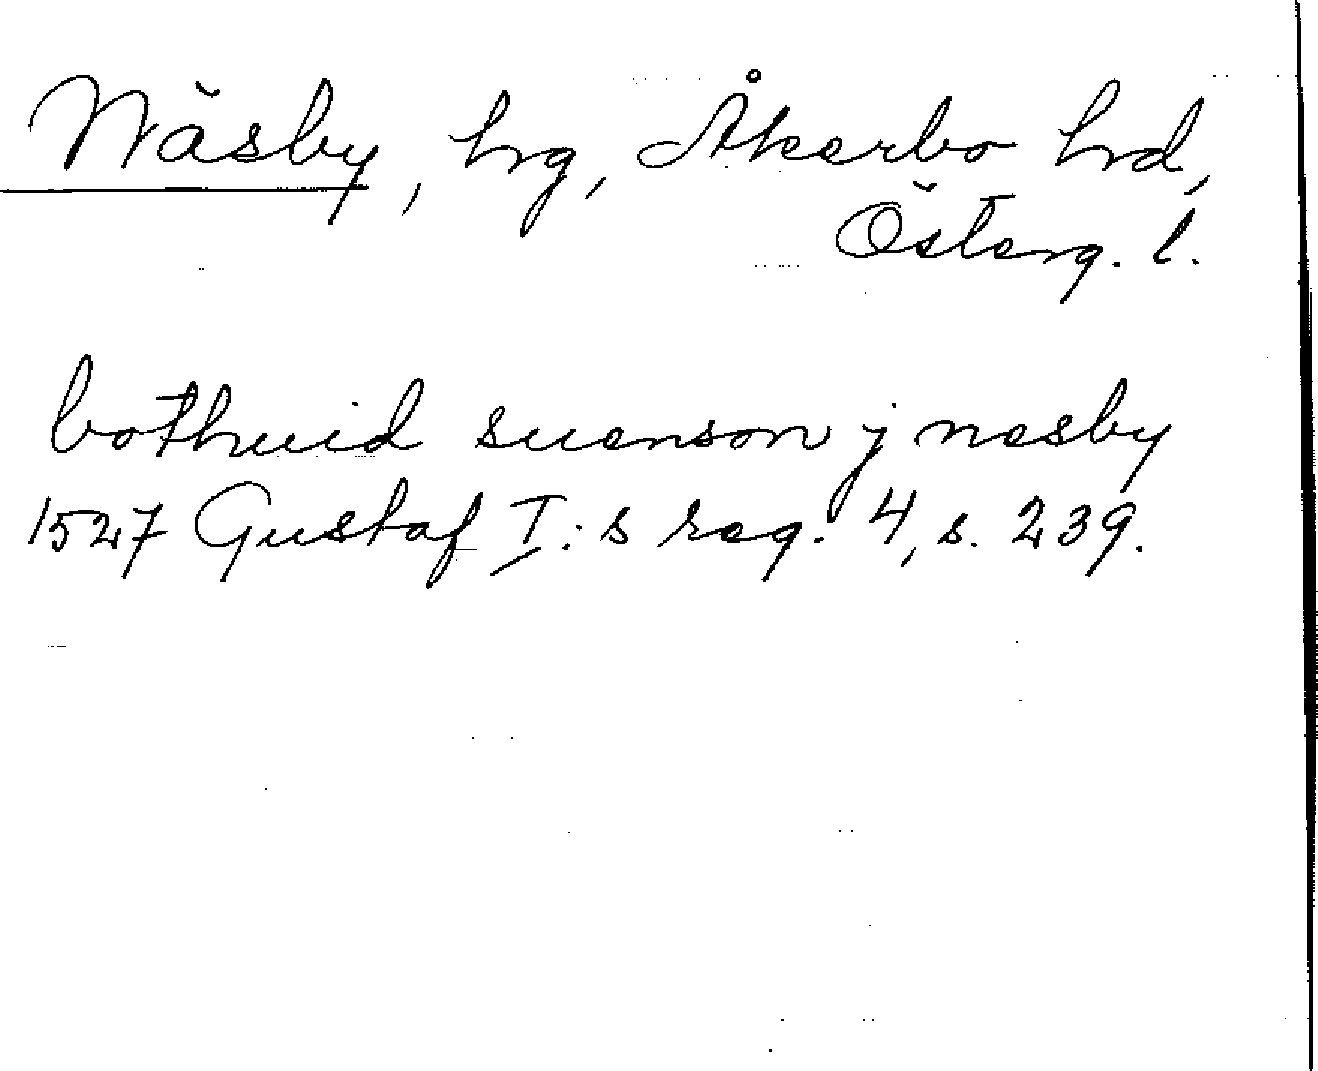 Näsby, hrg, Åkerbo hrd,
Österg. l.
bothuid suenson j nesby
1527 Gustaf I:s reg. 4, s. 239.